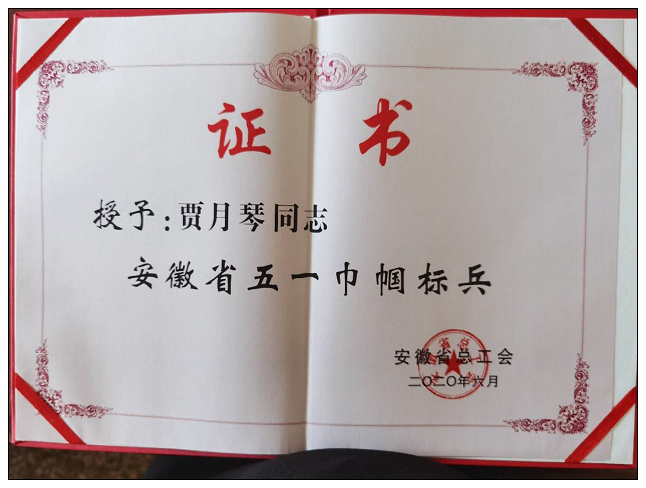 证书
授予：贾月琴同志
安徽省五一巾帼标兵
安徽省总工会
二〇二〇年六月